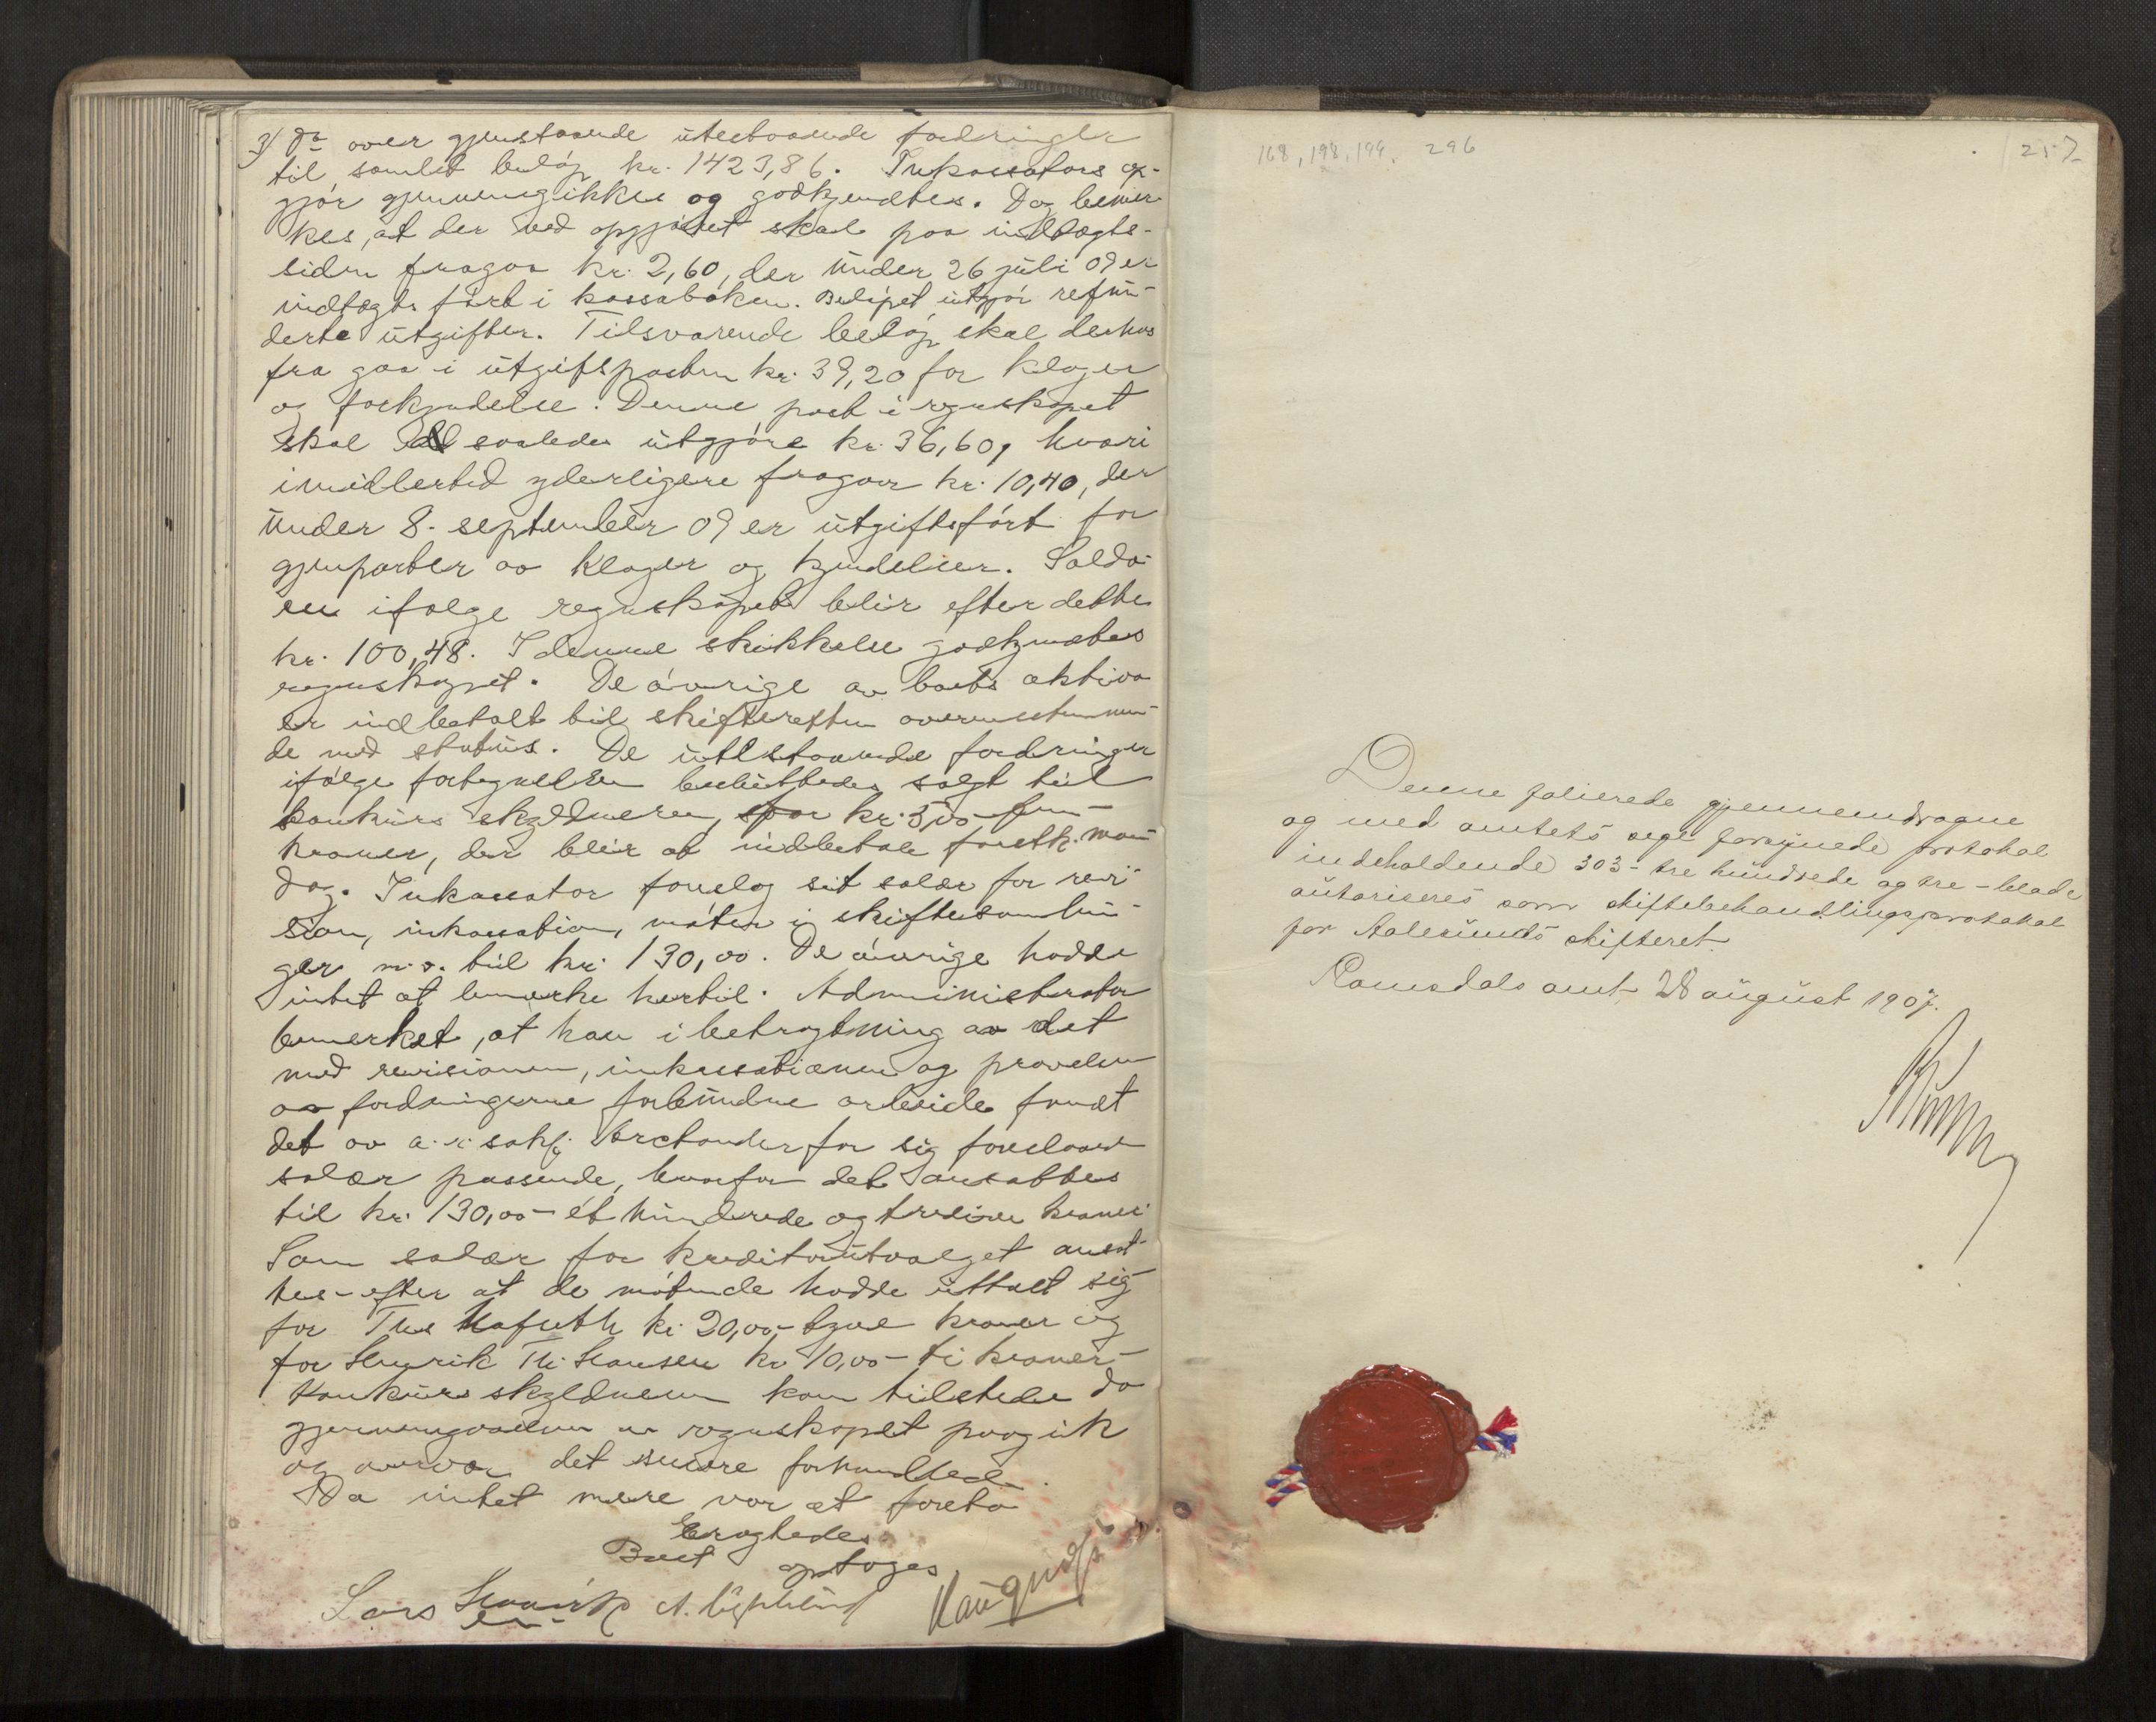 3) Do over gjenstaaende utestaaende fordringer
til samlet beløp kr. 1423,86. Inkassators op-
gjør gjennemgikkes og godkjendtes. Dog bemer-
kes, at der ved opgjøret skal paa indtægts-
siden fragaa kr. 2,60, der under 26 juli 09 er
indtægtsført i kassaboken. Beløpet utgjør refun-
derte utgifter. Tilsvarende beløp skal derhos
fra gaa i utgiftsposten kr. 39,20 for klager
og forkyndelse. Denne post i regnskapet
skal saaledes utgjøre kr. 36,60, hvori
imidlertid yderligere fragaar kr. 10,40, der
under 8. september 09 er utgiftsført for
gjenparter av klager og kjendelser. Saldo-
en ifølge regnskapet blir efter dette
kr. 100,48. I denne skikkelse godkjendtes
regnskapet. De øvrige av boets aktiva
er indbetalt til skifteretten overensstemmen-
de med status. De utestaaende fordringer
ifølge fortegnelsen besluttedes solgt til
konkurs skyldneren, for kr. 5,00 fem
kroner, der blir at indbetale førstk. man-
dag. Inkassator foreslog sit salær for revi-
sion, inkassation, møter i skiftesamlin-
ger m.v. til kr. 130,00. De øvrige hadde
intet at bemerke hertil. Administrator
bemerket, at han i betragtning av det
med revisionen, inkassationen og prøvelsen
av fordringerne forbundne arbeide fandt
det av sakf. for sig foreslaaede
salær passende, hvorfor det ansattes
til kr. 130,00 – et hundrede og tredive kroner.
Som salær for kreditorutvalget ansat-
tes – efter at de møtende hadde uttalt sig
for kr. 20,00 – tyve kroner og
for Henrik Th. Hansen kr. 10,00 – ti kroner –
Konkurs skyldneren kom tilstede da
gjennemgaaelsen av regnskapet paagik
og overvar det senere forhandlede.
Da intet mere var at foreta
Boet optages
Lars
168, 198, 199, 296
257
Denne folierede gjennemdragne
og med amtets segl forsynede protokol
indeholdende 303 – tre hundrede og tre – blade
autoriseres som skiftebehandlingsprotokol
for Aalesunds skifteret.
Romsdals amt 28 august 1907.